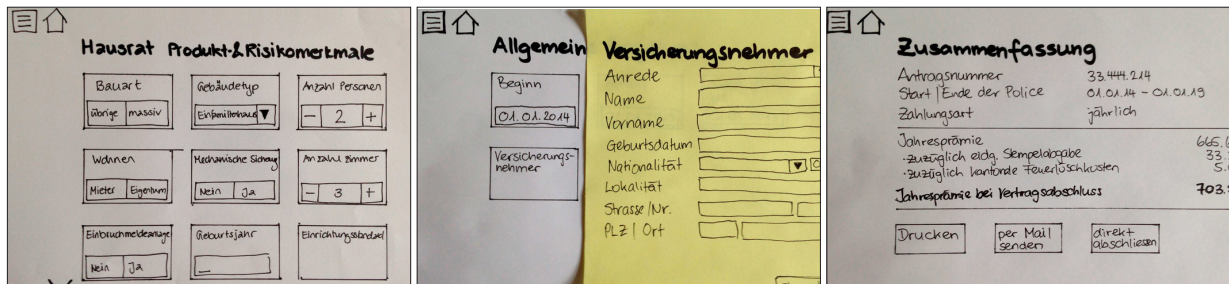 Hausrat Produkt-& Risikomerkmale
Bauart
Gebäudetyp
Anzahl Personen
übrige massiv
Einfamilienhaus
- 2 +
Wohnen
Mechanische
Anzahl Zimmer
Mieter Eigentum
Nein Ja
- 3 +
Einbruchmeldeanlage
Geburtsjahr
Nein Ja
Allgemein
Beginn
01.01.2014
Versicherungs-
nehmer
Versicherungsnehmer
Anrede
Name
Vorname
Geburtsdatum
Nationalität
Lokalität
Strasse/Nr.
PLZ / Ort
Zusammenfassung
Antragsnummer 33.444.214
Start / Ende der Police 01.01.14 - 01.01.19
Zahlungsart jährlich
Jahresprämie 665.
·zuzüglich eidg. Stempelabgabe 33.
·zuzüglich kantonale Feuerlöschkosten 5.
Jahresprämie bei Vertragsabschluss 703.
Drucken
per Mail
senden
direkt
abschliessen